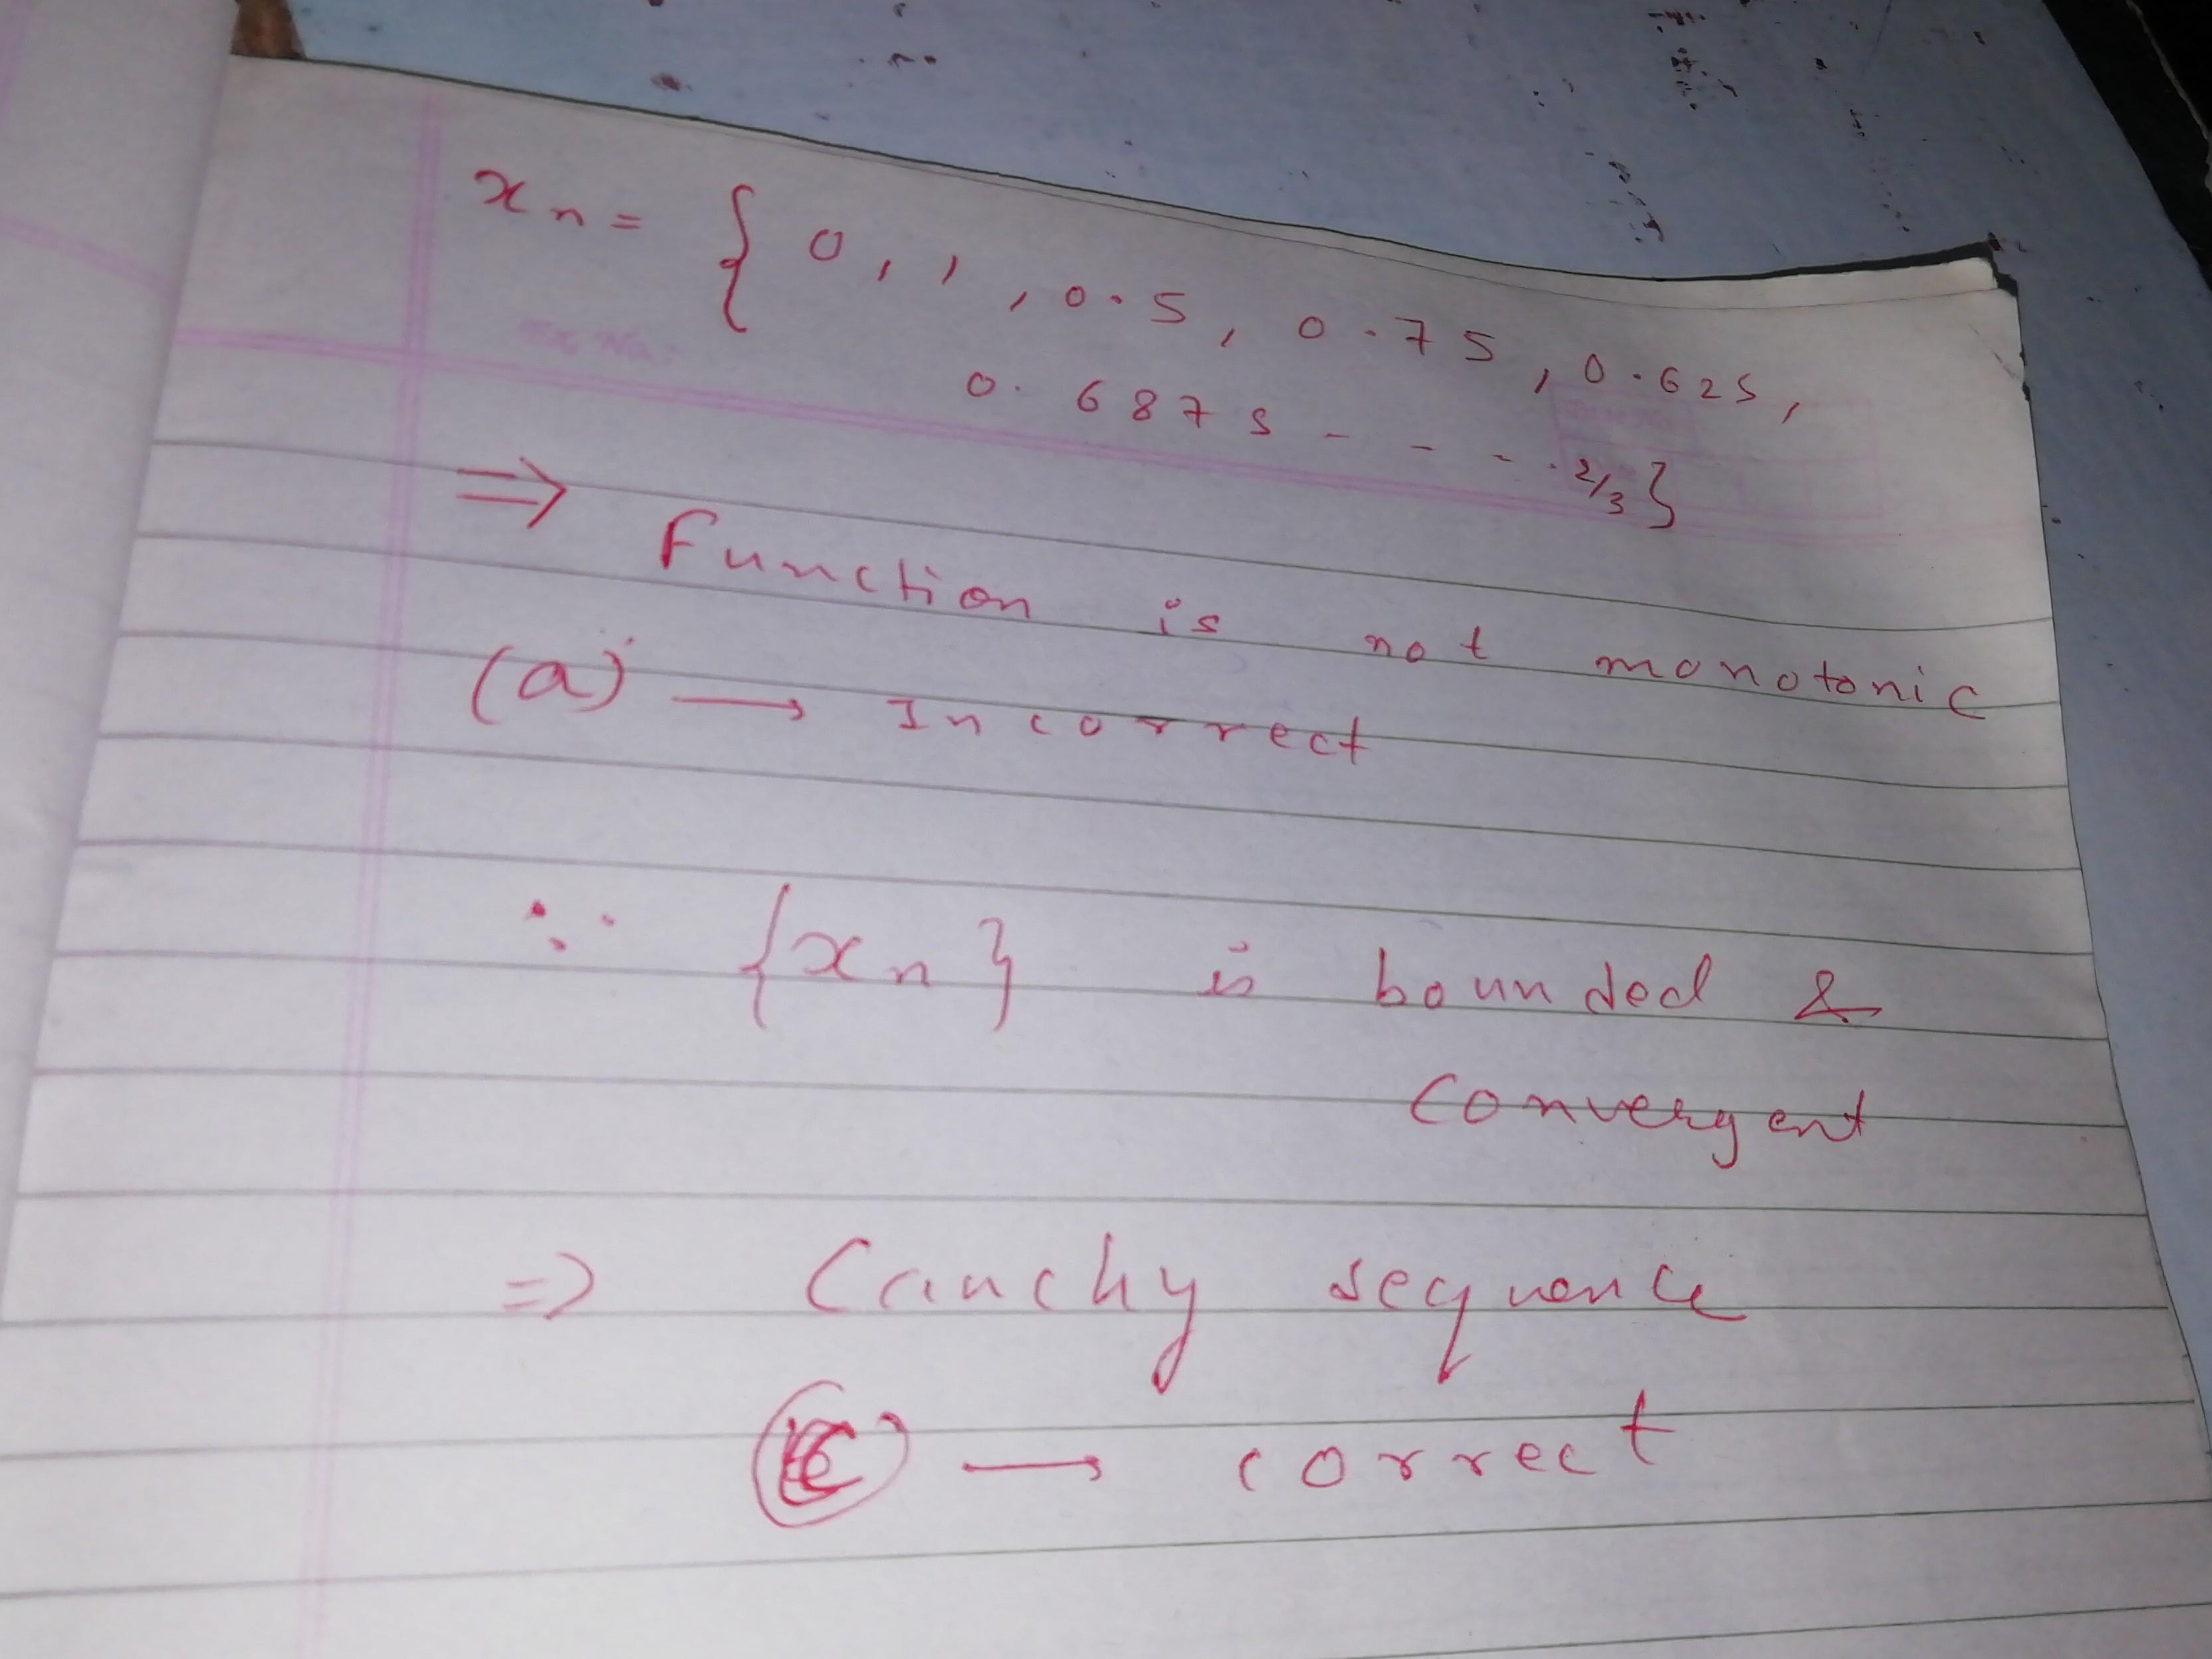 xn = { 0, 1, 0.5, 0.75, 0.625,
0.6875 - - - . 2/3 }
⇒ Function is not monotonic
(a) → Incorrect
∵ {xn} is bounded &
Convergent
⇒ Cauchy sequence
(C) → correct